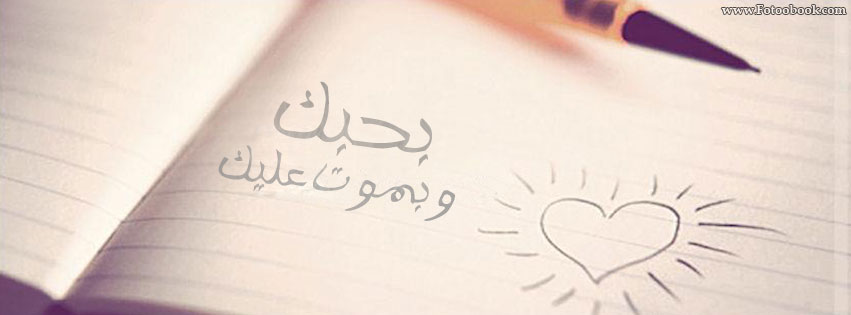 www.Fotoobook.com
بحبك
وبموت عليك